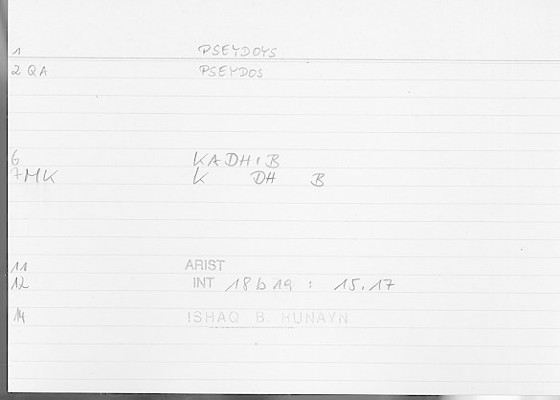 1 PSEYDOYS
2 QA PSEYDOS
6 KADHIB
7 MK K DH B
11 ARIST
12 INT 18b19 : 15.17
14 ISHAQ B. HUNAYN